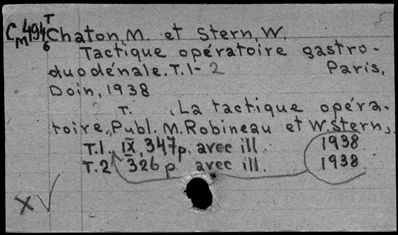 C 494 T Chaton, M. et Stern, W.
M 6
Tactique opératoire gastro-
duodénale. T.1-2 Paris,
Doin, 1938
T. , La tactique opéra-
toire, Publ. M. Robineau et W. Stern,
T.1. IX, 347 p. avec ill. 1938
T.2 326 p. avec ill. 1938